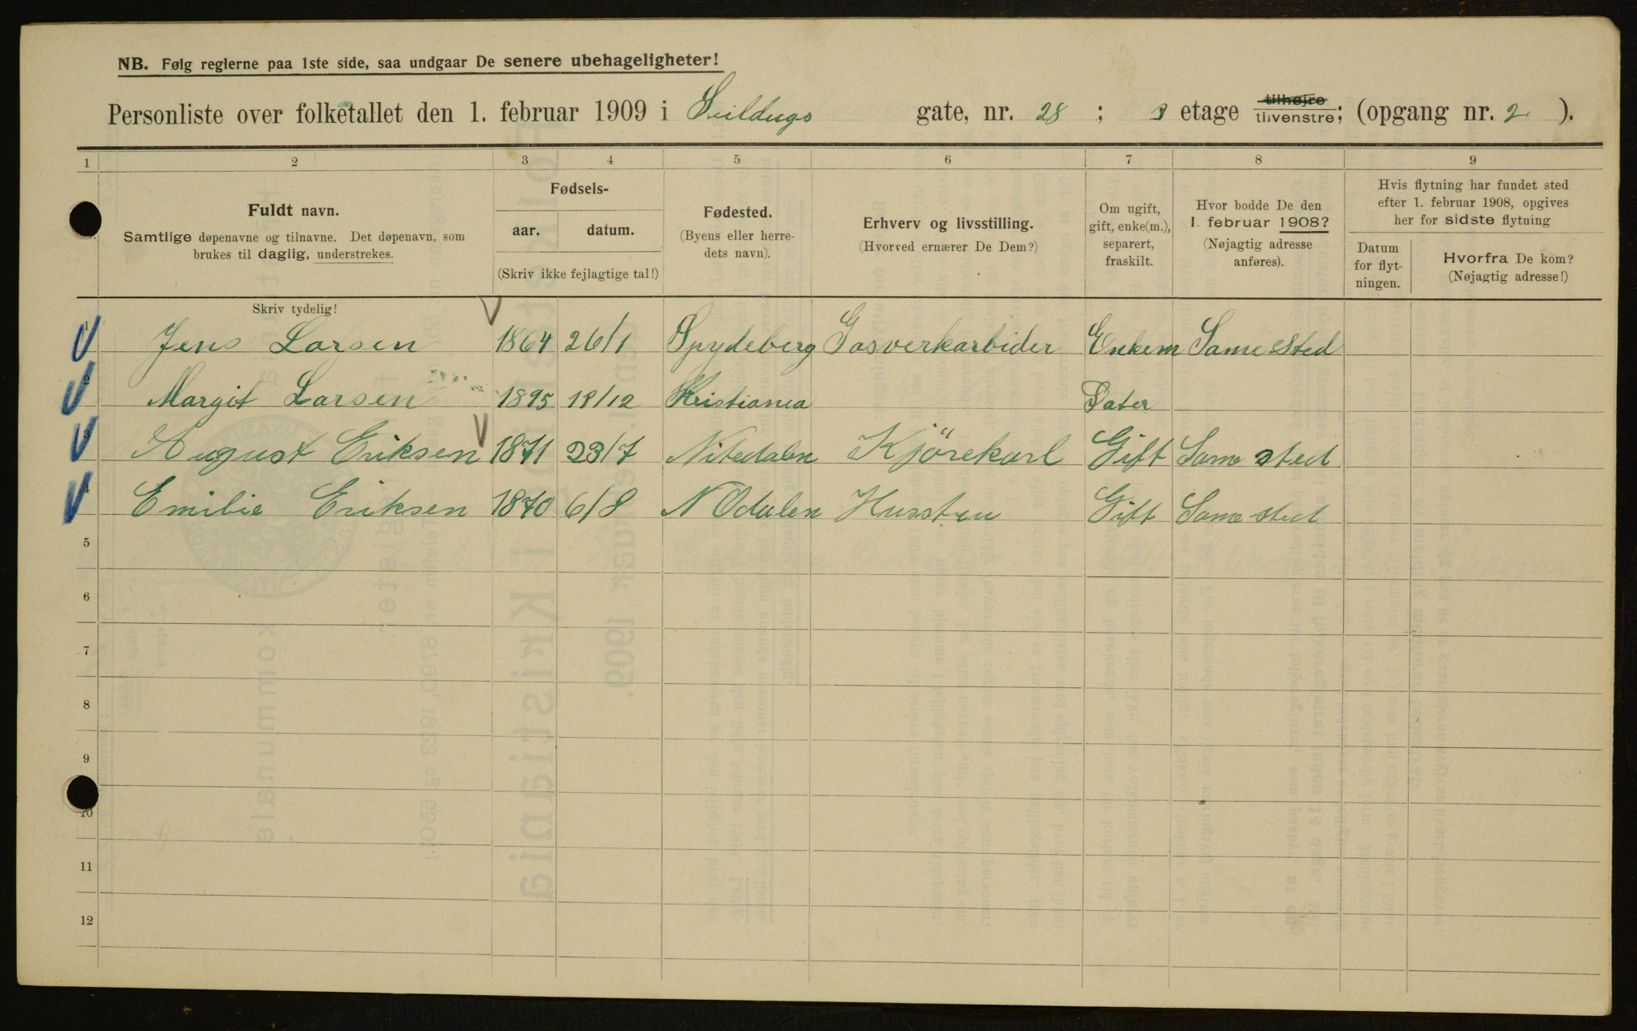 NB. Følg reglerne paa 1ste side, saa undgaar De senere ubehageligheter!
Personliste over folketallet den 1. februar 1909 i Seildugs gate, nr. 28 ; 3 etage tilhøjre tilvenstre; (opgang nr. 2 ).
1 2 3 4 5 6 7 8 9
Fuldt navn.
Samtlige døpenavne og tilnavne. Det døpenavn, som
brukes til daglig, understrekes.
Fødsels-
aar. datum.
(Skriv ikke fejlagtige tal!)
Fødested.
(Byens eller herre-
dets navn).
Erhverv og livsstilling.
(Hvorved ernærer De Dem?)
Om ugift,
gift, enke(m.),
separert,
fraskilt.
Hvor bodde De den
1. februar 1908?
(Nøjagtig adresse
anføres).
Hvis flytning har fundet sted
efter 1. februar 1908, opgives
her for sidste flytning
Datum
for flyt-
ningen.
Hvorfra De kom?
(Nøjagtig adresse!)
Skriv tydelig!
1 Jens Larsen 1864 26/1 Spydeberg Gasverkarbider Enkem Samested
2 Margit Larsen 1895 18/12 Kristiania Dater
3 August Eriksen 1871 23/7 Nitedalen Kjörekarl Gift Same sted
4 Emilie Eriksen 1870 6/8 N Odalen Husstru Gift Same sted
5
6
7
8
9
10
11
12